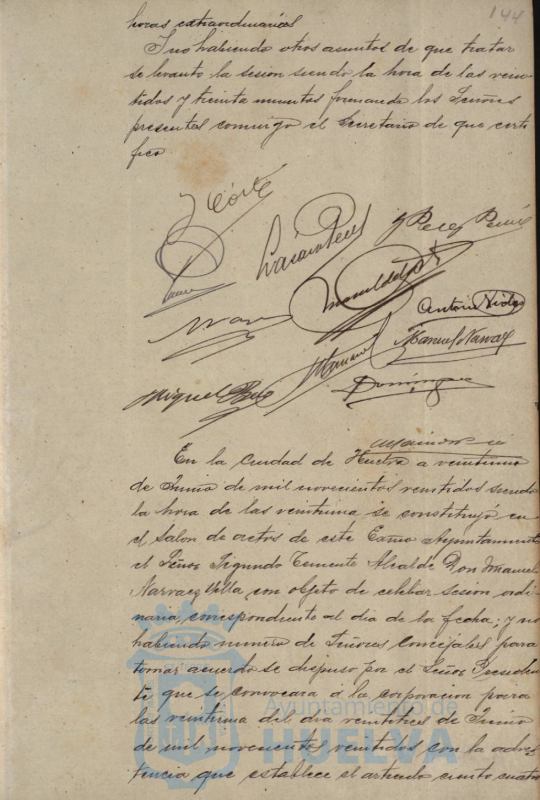 144
horas extraordinarias
Y no habiendo otros asuntos de que tratar
se levanto la sesion siendo la hora de las vein
tidos y treinta minutos firmando los Señores
presentes conmigo el Secretario de que certi
fico
Lázaro Perez
J Perez
Manuel del
Antonio
Manuel Narvaez
Miguel
Dominguez
En la Ciudad de Huelva a veintiuno
de Junio de mil novecientos veintidos siendo
la hora de las veintiuna se constituyó en
el Salon de actos de este Excmo Ayuntamiento
el Señor Segundo Teniente Alcalde Don Manuel
Narvaez Villa con objeto de celebrar sesion ordi
naria correspondiente al dia de la fecha; y no
habiendo numero de Señores Concejales para
tomar acuerdo se dispuso por el Señor Presiden
te que se convocara á la corporacion para
las veintiuna del dia veintitres de Junio
de mil novecientos veintidos con la adver
tencia que establece el articulo ciento cuatro
Ayuntamiento de
HUELVA